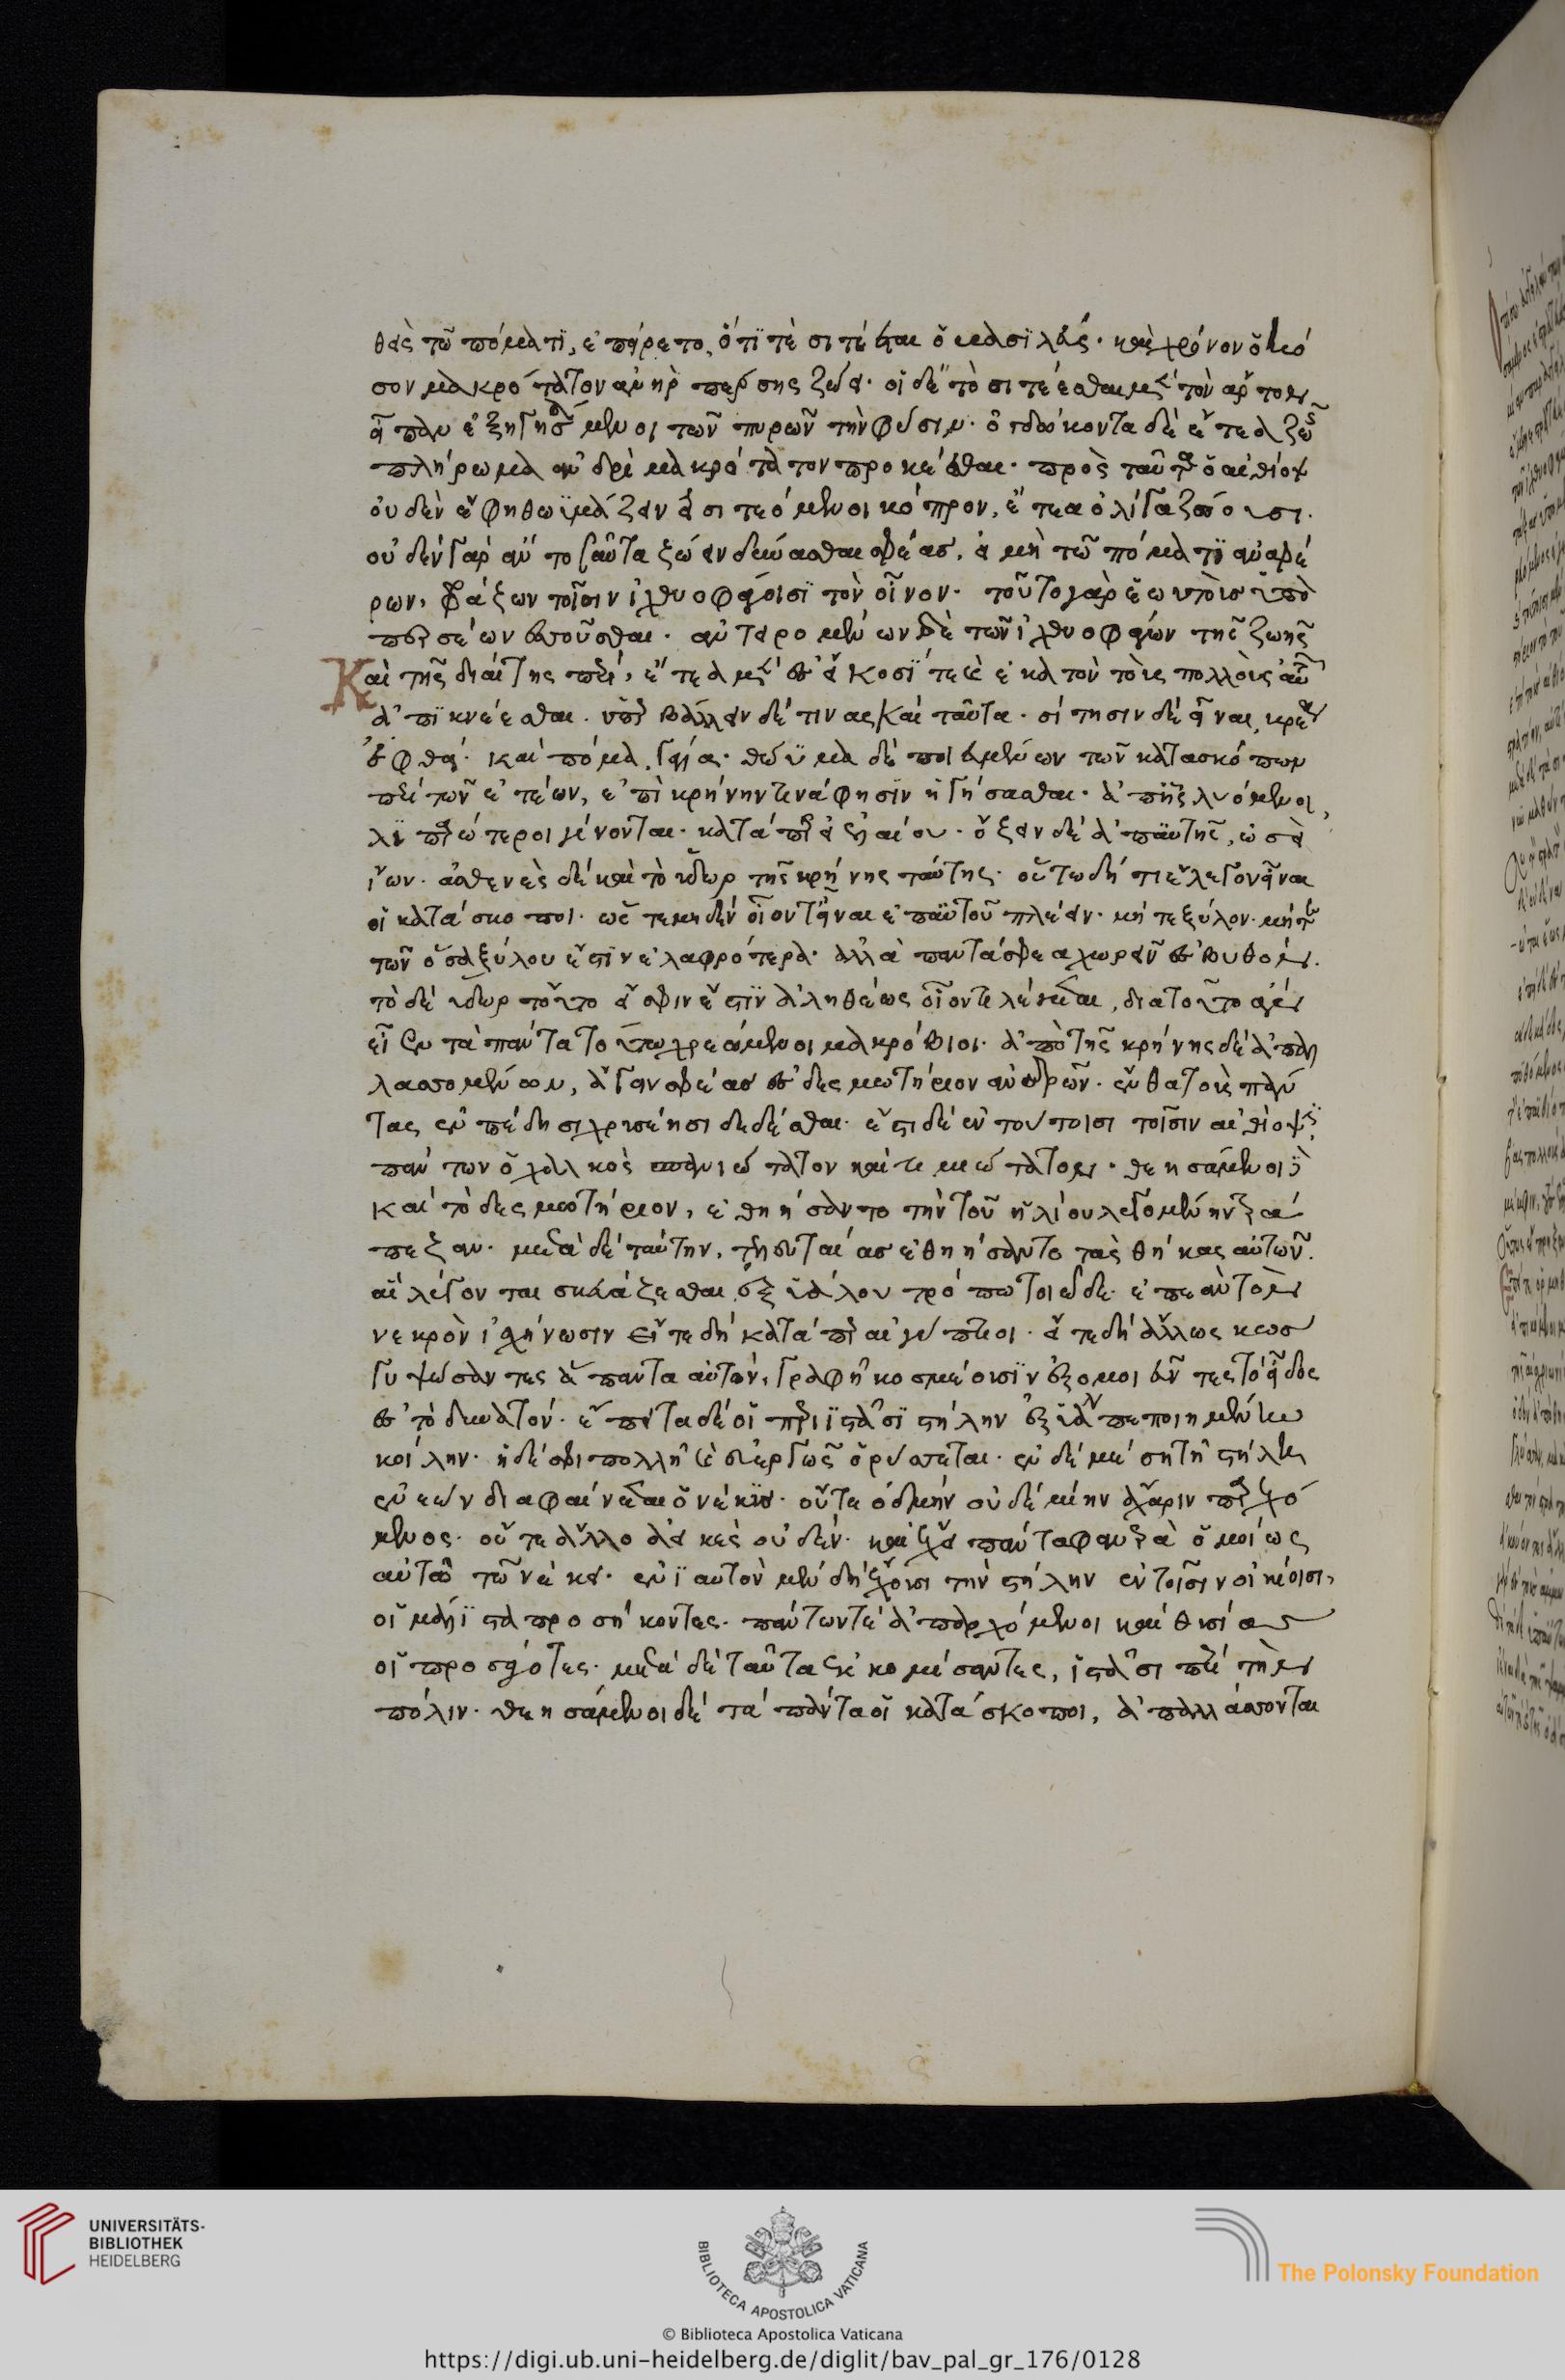 θεὶς τῶ πόματϊ, ἐπείρετο, ὅτϊ τὲ σιτέεται ὁ βασϊλεύς· καὶ χρόνον ὁκό
σον μακρότατον ἀνὴρ πέρσης ζώει· οἱ δὲ τὸ σιτέεσθαι μὲν τὸν ἄρτον
εἶπαν ἐξηγησάμενοι τῶν πυρῶν τὴν φύσιν· ὀγδώκοντα δὲ ἔτεα ζωῆς
πλήρωμα ἀνδρὶ μακρότατον προκέεσθαι· πρὸς ταῦτα ὁ αἰθίοψ
οὐδὲν ἔφη θωϊμάζειν εἰ σιτεόμενοι κόπρον, ἔτεα ὀλίγα ζώουσι.
οὐδὲν γὰρ ἂν τοσαῦτα ζώειν δύνασθαι σφέας, εἰ μὴ τῶ πόματϊ ἀναφέ
ρων, φράζων τοῖσιν ἰχθυοφάγοισϊ τὸν οἶνον· τοῦτο γὰρ ἑωυτοὺς ὑπὸ
περσέων ἑσσοῦσθαι· ἀντειρομένων δὲ τῶν ἰχθυοφάγων τῆς ζωῆς
Καὶ τῆς διαίτης περί, ἔτεα μὲν ἐς εἴκοσϊ τε καὶ ἑκατὸν τοὺς πολλοὺς αὐτῶν
ἀπϊκνέεσθαι· ὑπερβάλλειν δέ τινας καὶ ταῦτα· σίτησιν δὲ εἶναι, κρέα
ἑφθά· καὶ πόμα, γάλα· θώϋμα δὲ ποιευμένων τῶν κατασκόπων
περὶ τῶν ἐτέων, ἐπὶ κρήνην τινά φησϊν ἡγήσασθαι· ἀπ᾽ ἧς λουόμενοι
λϊπαρώτεροι γένονται· κατάπερ εἰ ἐλαίου· ὄζειν δὲ ἀπ᾽ αὐτῆς, ὡσεὶ
ἴων· ἀσθενὲς δὲ καὶ τὸ ὕδωρ τῆς κρήνης ταύτης· οὕτω δή τι ἔλεγον εἶναι
οἱ κατάσκοποι· ὥς τε μηδὲν οἷόν τ᾽ εἶναι ἐπ᾽ αὐτοῦ πλέειν· μή τε ξύλον· μήτε
τῶν ὅσα ξύλου ἔστιν ἐλαφρότερα· ἀλλὰ πάντα σφεα χωρεῖν ἐς βυθόν.
τὸ δὲ ὕδωρ τοῦτο εἴ σφιν ἔστϊν ἀληθέως οἷόν τε λέγεται, διὰ τοῦτο ἂν
εἶεν τὰ πάντα τούτω χρεώμενοι μακρόβιοι· ἀπὸ τῆς κρήνης δὲ ἀπαλ
λασσομένων, ἄγειν σφέας ἐς δεσμωτήριον ἀνδρῶν· ἔνθα τοὺς πάν
τας ἐν πέδησι χρυσέησι δεδέσθαι· ἔστι δὲ ἐν τούτοισι τοῖσιν αἰθίοψϊ
πάντων ὁ χαλκὸς σπανιώτατον καὶ τιμιώτατον· θεησάμενοι δὲ
καὶ τὸ δεσμωτήριον, ἐθηήσαντο τὴν τοῦ ἡλίου λεγομένην τρά
πεζαν· μετὰ δὲ ταύτην, τελευταίας ἐθηήσαντο τὰς θήκας αὐτῶν.
αἳ λέγονται σκευάζεσθαι ἐξ ὑάλου τρόπω τοιῷδε· ἐπεὰν τὸν
νεκρὸν ἰσχήνωσιν εἴτε δὴ κατάπερ αἰγύπτιοι· εἴτε δὴ ἄλλως κως
γυψώσαντες ἅπαντα αὐτὸν, γραφῆ κοσμέουσϊν ἐξομοιεῦντες τὸ εἶδος
ἐς τὸ δυνατόν· ἔπειτα δέ οἱ περιϊστᾶσϊ στήλην ἐξ ὑάλου πεποιημένην
κοίλην· ἡ δέ σφι πολλὴ καὶ εὐεργὸς ὀρύσσεται· ἐν δὲ μέση τῆ στήλη
ἐνεὼν διαφαίνεται ὁ νέκυς· οὔτε ὀδμὴν οὐδεμίην ἄχαριν παρεχό
μενος· οὔτε ἄλλο ἀεικὲς οὐδέν· καὶ ἔχει πάντα φανερὰ ὁμοίως
αὐτῶ τῶ νέκυϊ· ἐνϊαυτὸν μὲν δὴ ἔχουσι τὴν στήλην ἐν τοῖσιν οἰκίοισι,
οἱ μάλϊστα προσήκοντες· πάντων τε ἀπαρχόμενοι καὶ θυσίας
οἱ προσάγοντες· μετὰ δὲ ταῦτα ἐκκομίσαντες, ἱστᾶσι περὶ τὴν
πόλιν· θεησάμενοι δὲ τὰ πάντα οἱ κατάσκοποι, ἀπαλλάσσονται
UNIVERSITÄTS-
BIBLIOTHEK
HEIDELBERG
BIBLIOTECA APOSTOLICA VATICANA
© Biblioteca Apostolica Vaticana
The Polonsky Foundation
https://digi.ub.uni-heidelberg.de/diglit/bav_pal_gr_176/0128